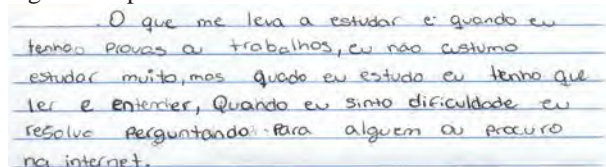 O que me leva a estudar e quando eu
tenho provas ou trabalhos, eu não custumo
estudar muito, mas quado eu estudo eu tenho que
ler e entender, Quando eu sinto dificuldade eu
resolvo Perguntando Para alguem ou procuro
na internet.